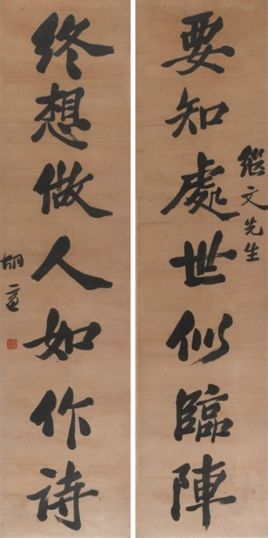 要知處世似臨陣
繼文先生
終想做人如作诗
胡適